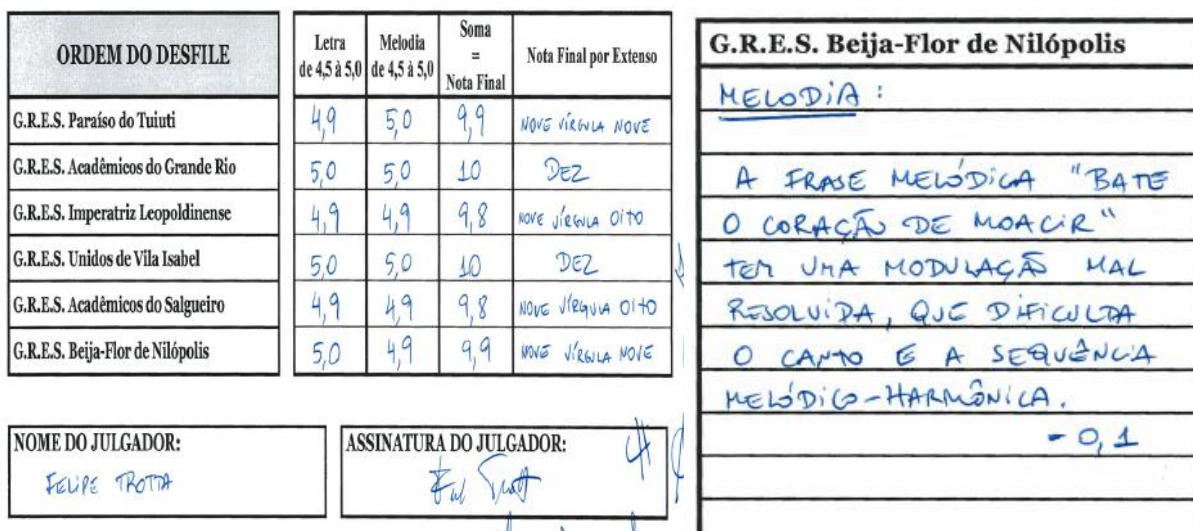 ORDEM DO DESFILE
Letra
de 4,5 à 5,0
Melodia
de 4,5 à 5,0
Soma
=
Nota Final
Nota Final por Extenso
G.R.E.S. Paraíso do Tuiuti 4,9 5,0 9,9 NOVE VÍRGULA NOVE
G.R.E.S. Acadêmicos do Grande Rio 5,0 5,0 10 DEZ
G.R.E.S. Imperatriz Leopoldinense 4,9 4,9 9,8 NOVE VÍRGULA OITO
G.R.E.S. Unidos de Vila Isabel 5,0 5,0 10 DEZ
G.R.E.S. Acadêmicos do Salgueiro 4,9 4,9 9,8 NOVE VÍRGULA OITO
G.R.E.S. Beija-Flor de Nilópolis 5,0 4,9 9,9 NOVE VÍRGULA NOVE
NOME DO JULGADOR:
FELIPE TROTTA
ASSINATURA DO JULGADOR:
G.R.E.S. Beija-Flor de Nilópolis
MELODIA:
A FRASE MELÓDICA "BATE
O CORAÇÃO DE MOACIR"
TEM UMA MODULAÇÃO MAL
RESOLVIDA, QUE DIFICULTA
O CANTO E A SEQUÊNCIA
MELÓDICO-HARMÔNICA.
- 0,1